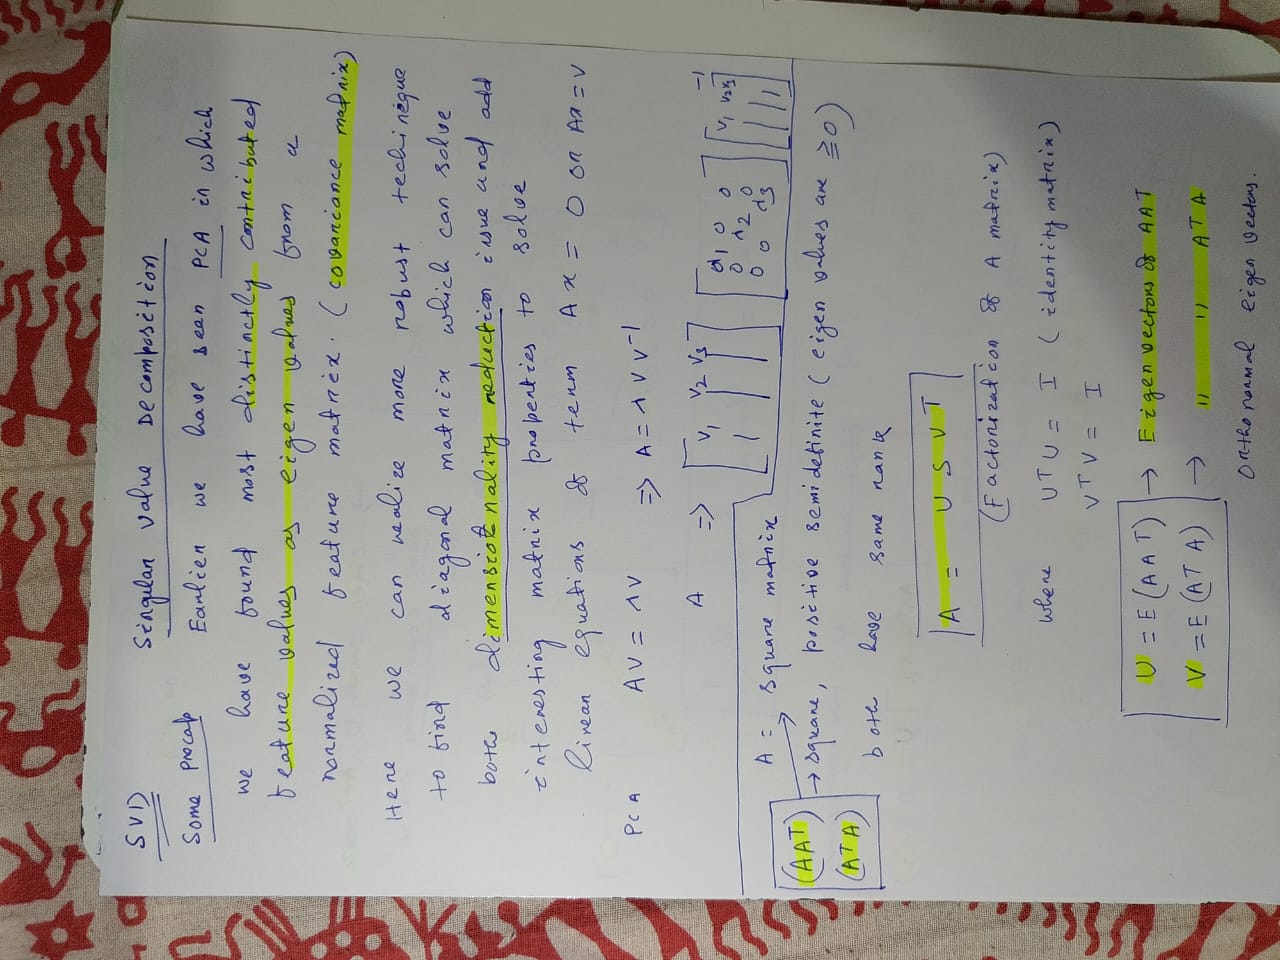 SVD Singular value decomposition
Some Precap Earlier we have seen PCA in which
we have found most distinctly contributed
feature values as eigen values from a
normalized feature matrix. (covariance matrix)
Here we can realize more robust techinique
to find diagonal matrix which can solve
both dimensionality reduction issue and add
interesting matrix properties to solve
linear equations of term Ax = 0 or Ax = v
PCA AV = λV => A = λVV⁻¹
A => [v1 v2 v3] [λ1 0 0
0 λ2 0
0 0 λ3] [v1 v2 v3]⁻¹
A = square matrix
(AAT) → square, positive semidefinite (eigen values are ≥ 0)
(ATA) both have same rank
A = U S V T
(Factorization of A matrix)
where UTU = I (identity matrix)
VTV = I
U = E (AAT) → Eigen vectors of AAT
V = E (ATA) → " " ATA
orthonormal eigen vectors.